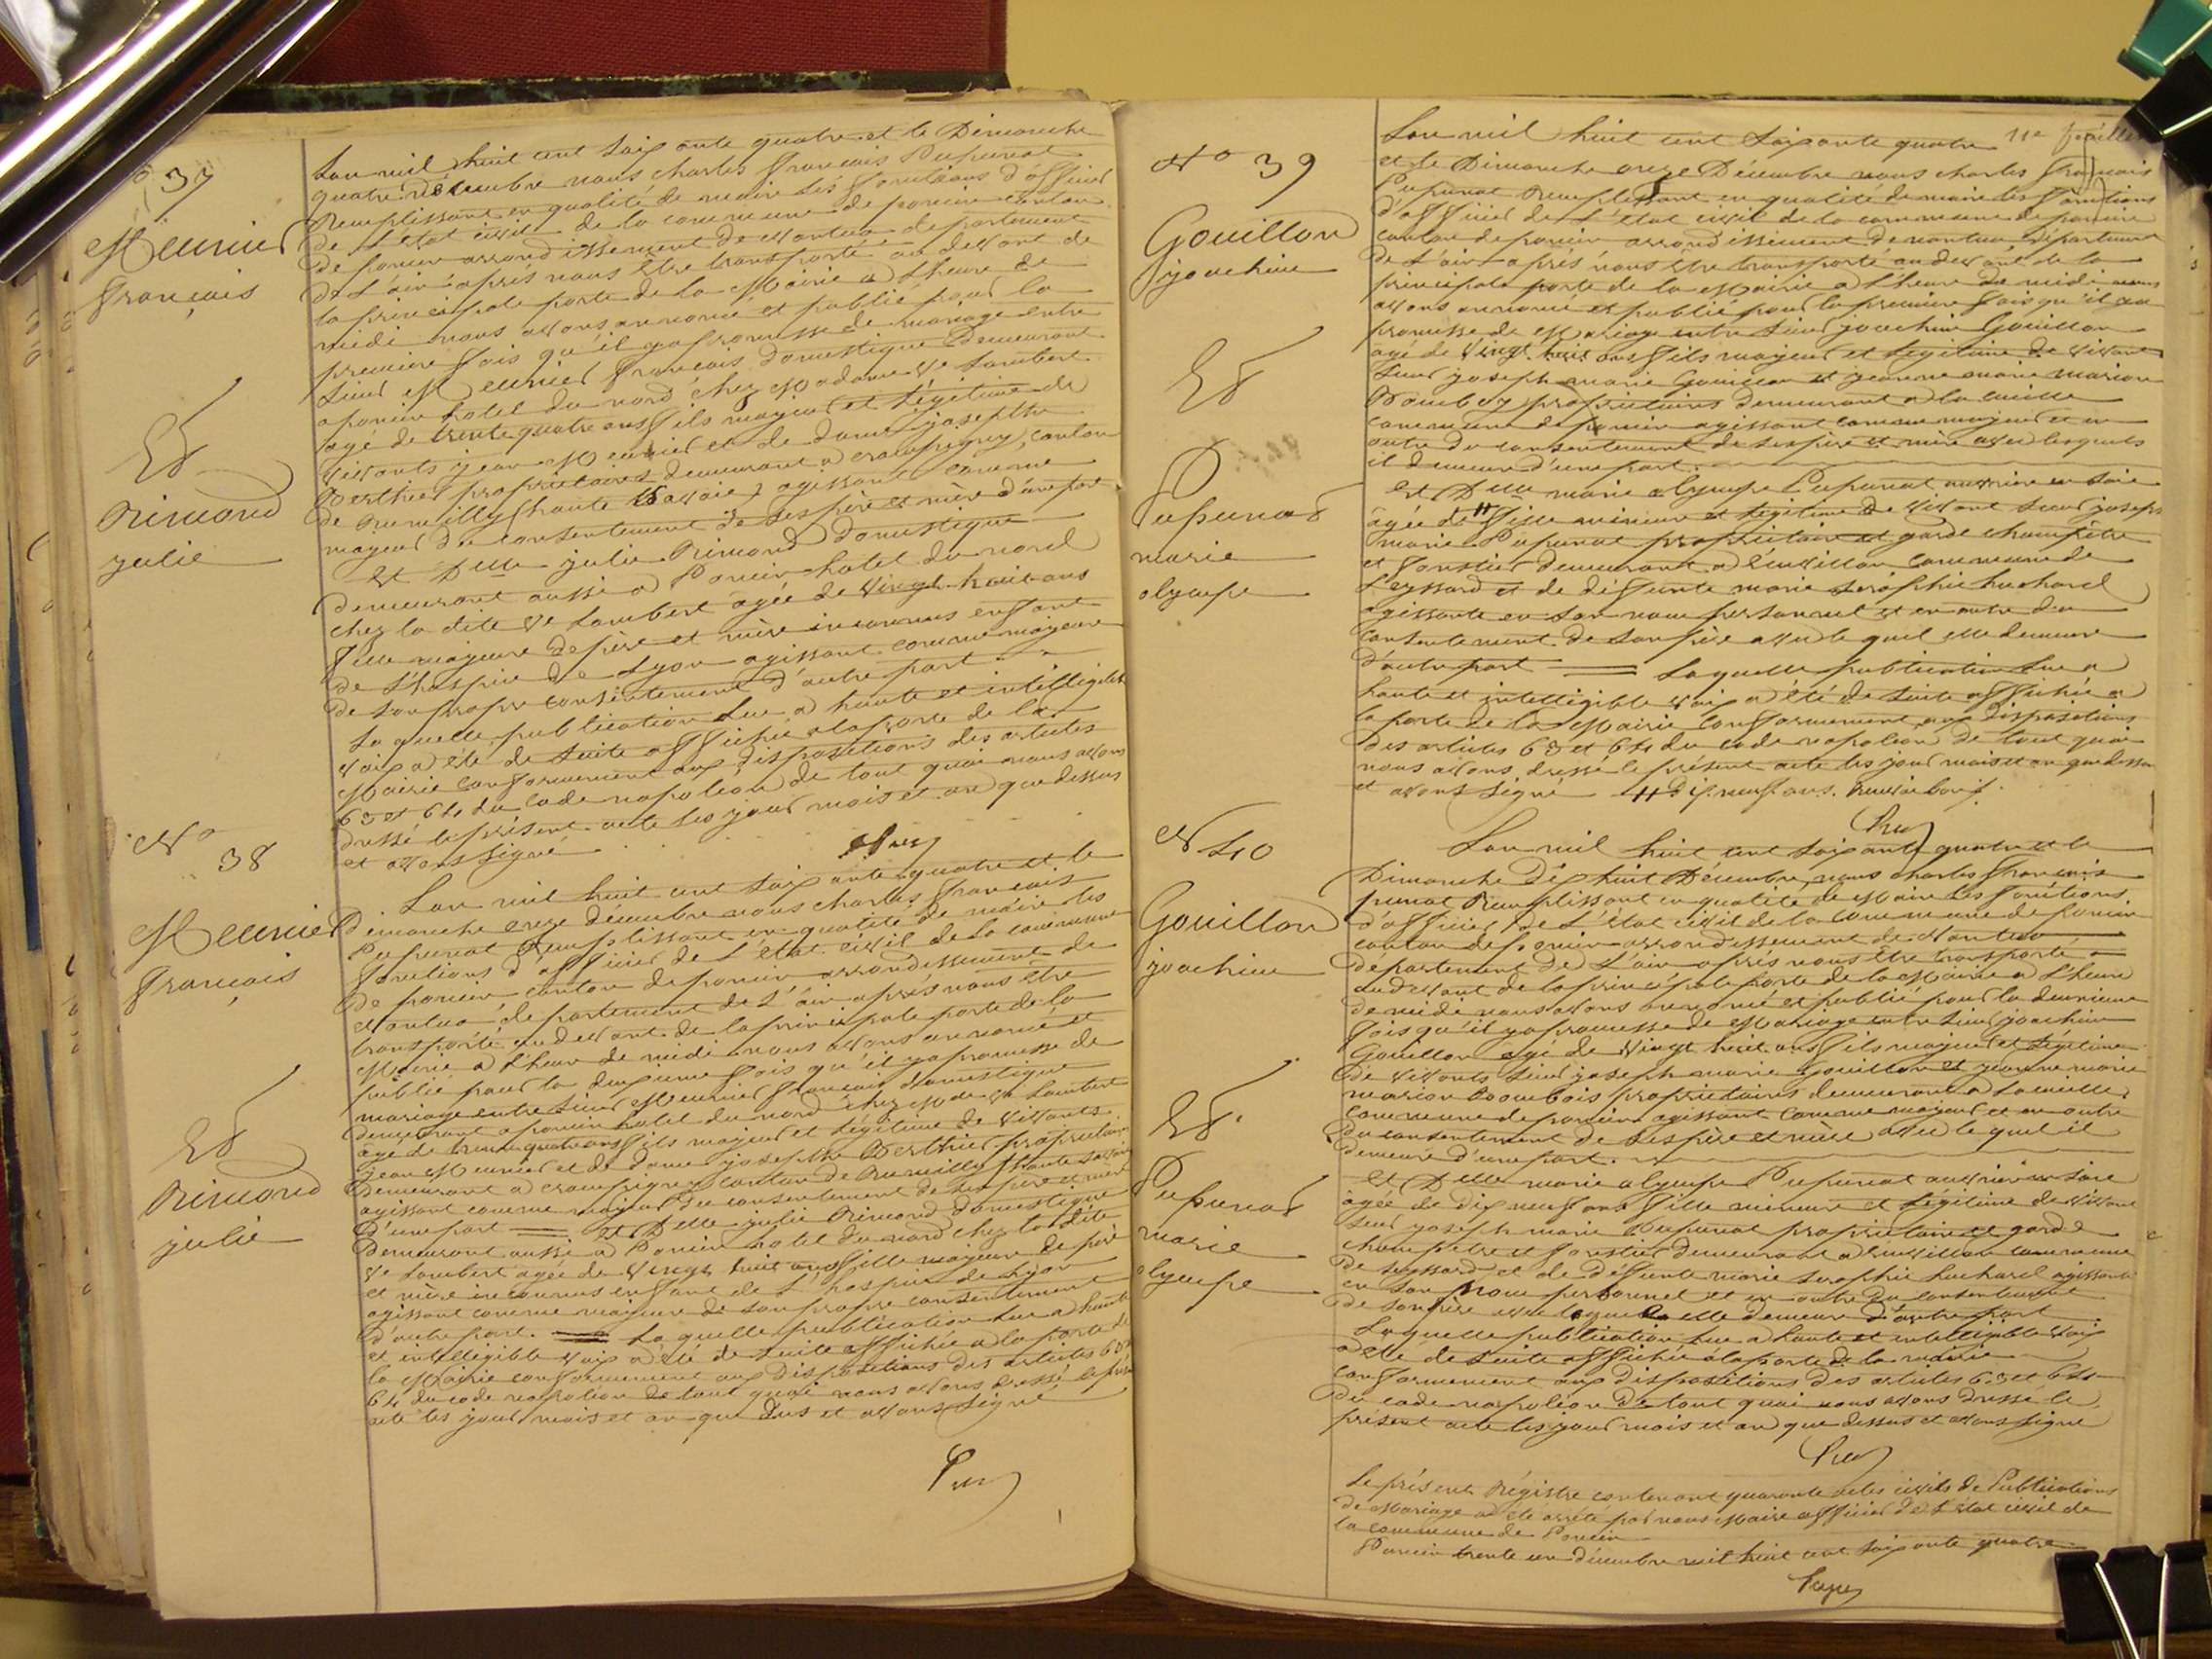 N° 37
Meunier
françois
Et
Rimond
julie
Lan mil huit cent soixante quatre et le Dimanche
quatre décembre nous charles françois Pupunat
Remplissant en qualité de maire les fonctions d'officier
de L'état civil de la commune de poncin canton
de poncin arrondissement de Nantua département
de L'ain après nous être transporté au devant de
la principale porte de la Mairie a L'heure de
midi nous avons annoncé et publié pour la
première fois qu'il y a promesse de mariage entre
sieur Meunier françois domestique Demeurant
a poncin hotel du nord chez Madame Ve Lambert
agé de trente quatre ans fils majeur et légitime de
vivants jean Meunier et de dame josephte
Berthier propriétaires demeurant a crampigny canton
de Rumilly (haute Savoie) agissant comme
majeur du consentement de ses père et mère d'une part
Et Dlle julie Rimond Domestique
demeurant aussi a Poncin hotel du nord
chez la dite Ve Lambert agée de vingt huit ans
fille majeure de père et mère inconnus enfant
de L'hospice de Lyon agissant comme majeure
de son propre consentement d'autre part.
La quelle publication lue a haute et intelligible
voix a été de suite affichée a la porte de la
Mairie conformément aux dispositions des articles
63 et 64 du code napoléon de tout quoi nous avons
dressé le présent acte les jour mois et an que dessus
et avons signé
N° 38
Meunier
françois
Et
Rimond
julie
Lan mil huit cent soixante quatre et le
Dimanche onze décembre nous charles françois
Pupunat Remplissant en qualité de maire les
fonctions d'officier de L'état civil de la commune
de poncin canton de poncin arrondissement de
Nantua département de L'ain après nous être
transporté au devant de la principale porte de la
Mairie a L'heure de midi nous avons annoncé et
publié pour la deuxieme fois qu'il y a promesse de
mariage entre sieur Meunier françois domestique
demeurant a poncin hotel du nord chez Mde Ve Lambert
agé de trente quatre ans fils majeur et légitime de vivants
jean Meunier et de dame josephte Berthier propriétaires
demeurant a crampigny canton de Rumilly (haute Savoie
agissant comme majeur du consentement de ses père et mère
D'une part et Dlle julie Rimond domestique
Demeurant aussi a Poncin hotel du nord chez la dite
Ve Lambert agée de vingt huit ans fille majeure de père
et mère inconnus enfant de L'hospice de Lyon
agissant comme majeure de son propre consentement
d'autre part. La quelle publication lue a haute
et intelligible voix a été de suite affichée a la porte de
la Mairie conformément aux dispositions des articles 63 et
64 du code napoléon de tout quoi nous avons dressé le présent
acte les jour mois et an que dus et avons signé
11e feuillet
N° 39
Gouillon
joachim
Et
Pupunat
marie
olympe
Lan mil huit cent soixante quatre
et le Dimanche onze Décembre nous charles françois
Pupunat Remplissant en qualité de maire les fonctions
d'officier de L'état civil de la commune de poncin
canton de poncin arrondissement de nantua département
de L'ain après nous être transporté au devant de la
principale porte de la Mairie a L'heure de midi nous
avons annoncé et publié pour la première fois qu'il y a
promesse de Mariage entre sieur joachim Gouillon
agé de vingt huit ans fils majeur et légitime de vivants
sieur joseph marie Gouillon et jeanne marie marion
propriétaires demeurant a la cueille
commune de poncin agissant comme majeur et en
outre du consentement de ses père et mère avec lesquels
il demeure d'une part.
Et Dlle marie olympe Pupunat ouvrière en soie
agée de # fille mineure et légitime de vivant sieur joseph
marie Pupunat propriétaire et garde champêtre
et forestier demeurant a commune de
Leyssard et de défunte marie séraphie Luchard
agissante en son nom personnel et en outre du
consentement de son père avec le quel elle demeure
d'autre part La quelle publication lue a
haute et intelligible voix a été de suite affichée a
la porte de la Mairie conformément aux dispositions
des articles 63 et 64 du code napoléon de tout quoi
nous avons dressé le présent acte les jour mois et an que dessus
et avons signé # dix neuf ans. Renvoi bon
N 40
Gouillon
joachim
Et
Pupunat
marie
olympe
Lan mil huit cent soixante quatre et le
Dimanche Dix huit Décembre, nous charles françois
punat Remplissant en qualité de Maire les fonctions
d'officier de L'état civil de la commune de poncin
canton de poncin arrondissement de Nantua
département de L'ain après nous être transporté
au devant de la principale porte de la Mairie a L'heure
de midi nous avons annoncé et publié pour la deuxieme
fois qu'il y a promesse de Mariage entre sieur joachim
Gouillon agé de vingt huit ans fils majeur et légitime
de vivants sieur joseph marie Gouillon et jeanne marie
marion propriétaires demeurant a La cueille
commune de poncin agissant comme majeur et en outre
du consentement de ses père et mère avec le quel il
demeure d'une part.
Et Dlle marie olympe Pupunat ouvrière en soie
agée de dix neuf ans fille mineure et légitime de vivant
sieur joseph marie Pupunat propriétaire et garde
champêtre et forestier demeurant a commune
de Leyssard et de défunte marie séraphie Luchard agissante
en son nom personnel et en outre du consentement
de son père avec lequel elle demeure d'autre part
La quelle publication lue a haute et intelligible voix
a été de suite affichée a la porte de la mairie
conformément aux dispositions des articles 63 et 64
du code napoléon de tout quoi nous avons dressé le
présent acte les jour mois et an que dessus et avons signé
Le présent Régistre contenant quarante actes civils de Publications
de Mariage a été arrêté par nous Maire officier de L'état civil de
la commune de Poncin
Poncin trente un décembre mil huit cent soixante quatre